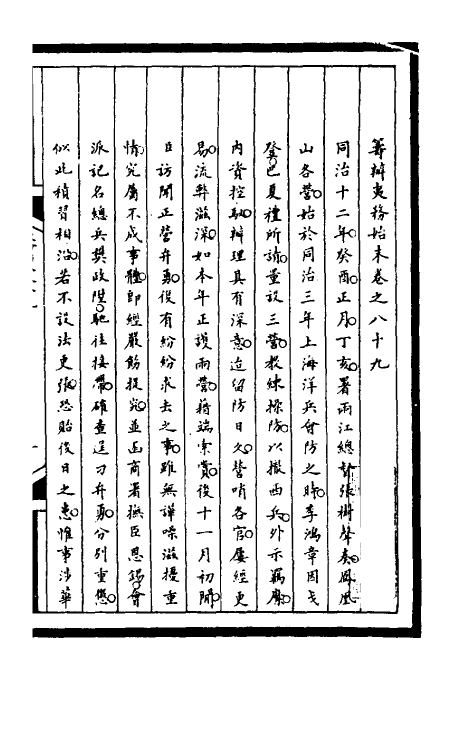 籌辦夷務始末卷之八十九
同治十二年癸酉正月丁亥署兩江總督張樹聲奏鳳凰
山各營始於同治三年上海洋兵會防之時李鴻章因戈
登巴夏禮所請量設三營教練操防以撤西兵外示羈縻
內資控馭辦理具有深意迨留防日久營哨各官屢經更
易流弊滋深如本年正護兩營藉端索賞後十一月初聞
臣訪聞正營弁勇復有紛紛求去之事雖無譁噪滋擾重
情究屬不成事體即經嚴飭提究並函商署撫臣恩錫會
派記名總兵樊政陞馳往接帶確查逞刁弁勇分別重懲
似此積習相沿若不設法更張恐貽後日之患惟事涉華